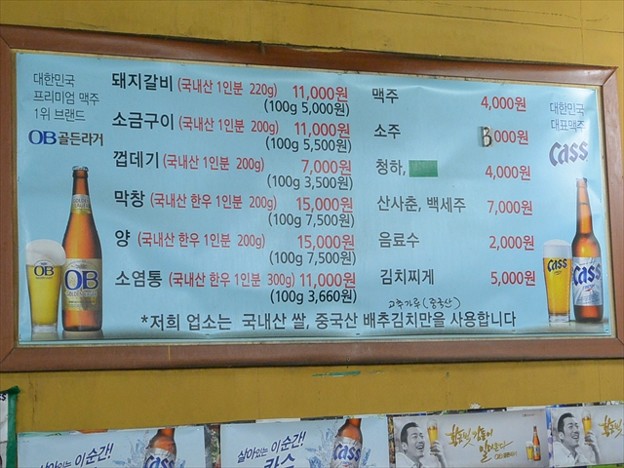 대한민국
프리미엄 맥주
1위 브랜드
OB 골든라거
돼지갈비 (국내산 1인분 220g) 11,000원
(100g 5,000원)
소금구이 (국내산 1인분 200g) 11,000원
(100g 5,500원)
껍데기 (국내산 1인분 200g) 7,000원
(100g 3,500원)
막창 (국내산 한우 1인분 200g) 15,000원
(100g 7,500원)
양 (국내산 한우 1인분 200g) 15,000원
(100g 7,500원)
소염통 (국내산 한우 1인분 300g) 11,000원
(100g 3,660원)
맥주 4,000원
소주 3,000원
청하, 4,000원
산사춘, 백세주 7,000원
음료수 2,000원
김치찌게 5,000원
고추가루(중국산)
*저희 업소는 국내산 쌀, 중국산 배추김치만을 사용합니다
대한민국
대표맥주
Cass
OB
OB
Cass
Cass
살아있는 이순간!
Cass
살아있는 이순간!
카스
Cass